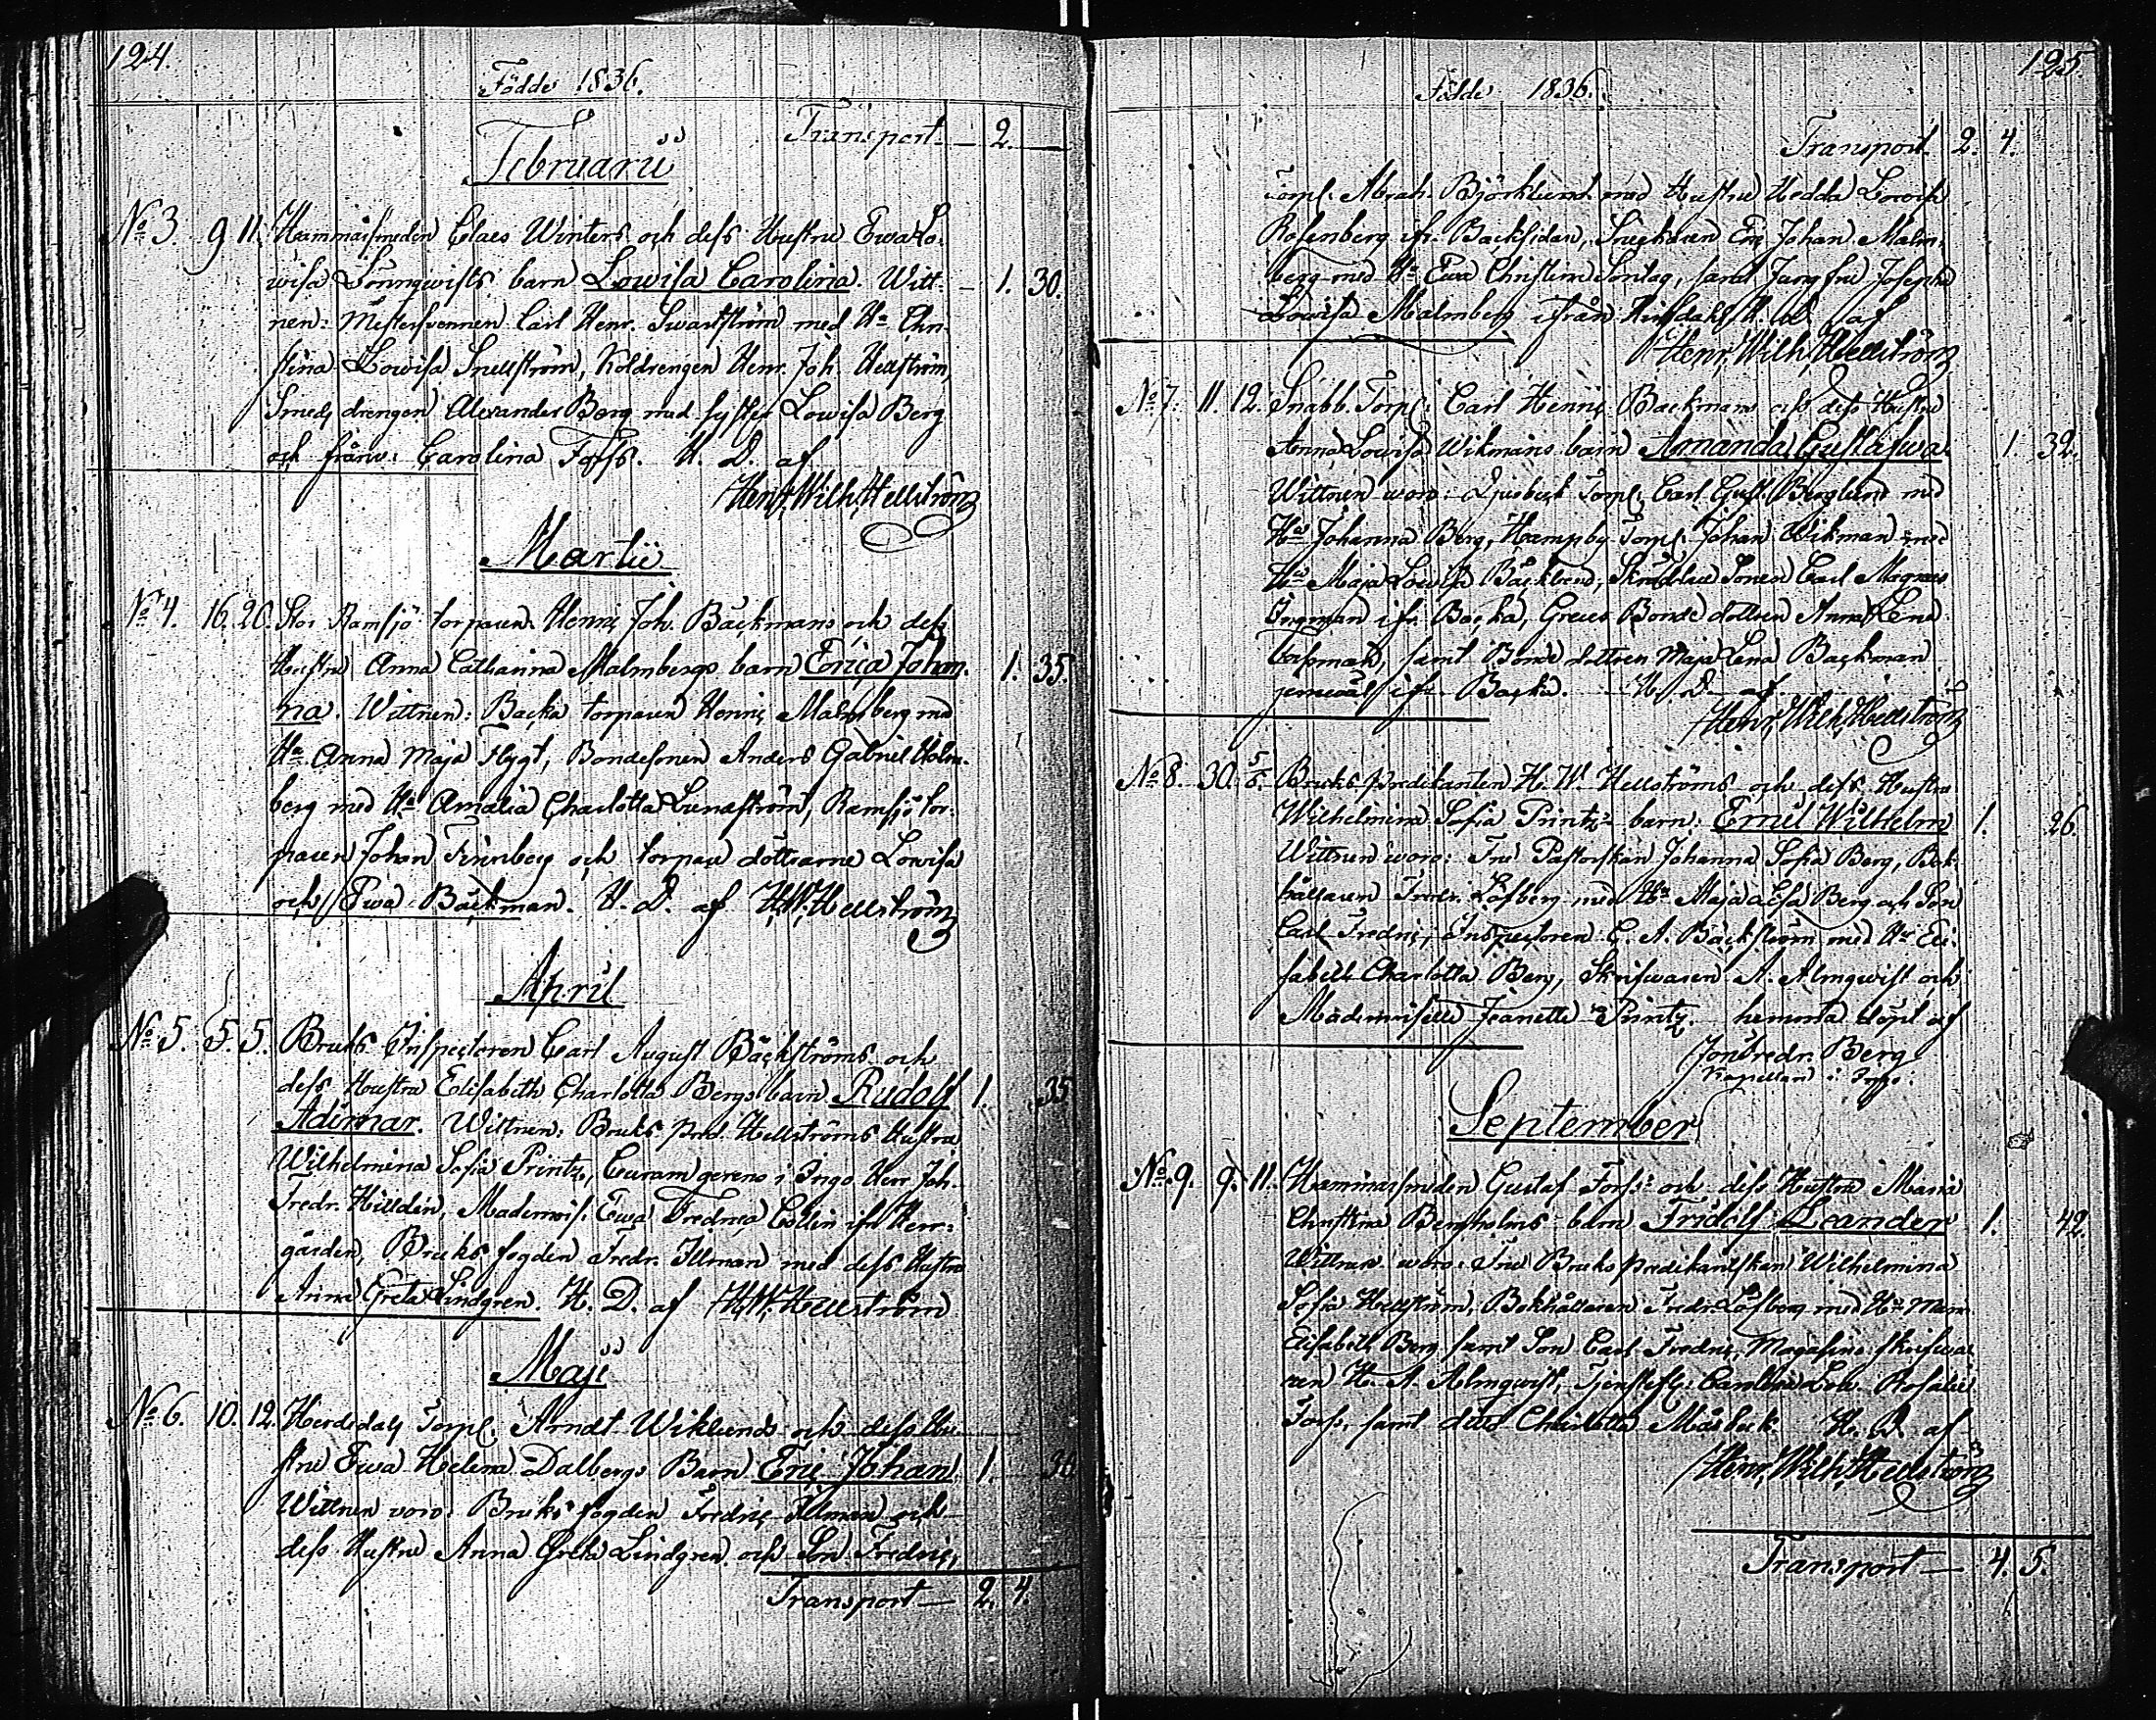 124.
Födde 1836.
Transport — 2. —
Februarii
No 3. 9 11. Hammarsmeden Claes Winters och dess Hustru Ewa Lo-
wisa Lönnqwists barn Lowisa Carolina. Witt- — 1. 30.
nen: Mästersvennen Carl Henr. Swartström med Hu Chri-
stina Lowisa Snellström, Koldrengen Henr. Joh. Hellström,
Smeds drengen Alexander Berg med syster Lowisa Berg
och Carolina Forss. H. D. af
Henr. Wilh. Hellström
Martii
No 4. 16. 20. Stor Ramsjö torparen Henric Joh. Bäckmans och dess
Hustru Anna Catharina Malmbergs barn Erica Johan- 1. 35.
na. Wittnen: Backa torparen Henric Malmberg med
Hu Anna Maja Flygt, Bondesonen Anders Gabriel Holm-
berg med Hu Amalia Charlotta Lunaström, Ramsjö tor-
paren Johan Finnberg och torpare döttrarne Lowisa
och Ewa Bäckman. H. D. af H. W. Hellström
April
No 5. 5. 5. Bruks Inspectoren Carl August Bäckströms och
dess Hustru Elisabeth Charlotta Bergs barn Rudolf 1 35
Adimar. Wittnen: Bruks pred. Hellströms Hustru
Wilhelmina Sofia Printz, Curam gerens i Ingo Herr Joh.
Fredr. Hilldén, Mademois: Ewa Fredrica Collin ifr. Herr-
gården, Bruks fogden Fredr. Illman med dess Hustru
Anna Greta Lindgren. H. D. af H. W. Hellström
Maji
No 6. 10. 12. Torp: Arndt Wiklunds och dess Hu-
stru Ewa Helena Dalbergs Barn Eric Johan 1. 36
Wittnen voro: Bruks fogden Fredric Illman och
dess Hustru Anna Greta Lindgren och Son Fredric,
Transport — 2. 4.
125.
Födde 1836.
Transport. 2. 4.
Torp: Abrah. Björklund med Hustru Hedda Lovisa
Rosenberg ifr. Backsidan, Eric Johan Malm-
berg med Hu Ewa Christina Sontag, samt Jungfru Josepha
Lowisa Malmberg ifrån H. D. af
Henr. Wilh. Hellström
No 7. 11. 12. Snabb. Torp: Carl Henric Backmans och dess Hustru
Anna Lowisa Wikmans barn Amanda Gustafwa. 1. 32.
Wittnen woro: Torp: Carl Gust. Berglund med
Hu Johanna Berg, Hampby Torp: Johan Wikman med
Hu Maja Lowisa Bäcklund, Sonen Carl Magnus
Ingman ifr. Backa, Bonde dottren Anna Lena
samt Bonde dottren Maja Lena Backman
ifr. Backa. H. D. af
Henr. Wilh. Hellström
No 8. 30. 5/6. Bruks predikanten H. W. Hellströms och dess Hustru
Wilhelmina Sofia Printz's barn: Emil Wilhelm 1. 26.
Wittnen woro: Fru Pastorskan Johanna Sofia Berg, Bok-
hållaren Fredr. Löfberg med Hu Maja Lisa Berg och Son
Carl Fredric, Inspectoren C. A. Bäckström med Hu Eli-
sabeth Charlotta Berg, Skrifwaren A. Almqwist och
Mademoiselle Jeanette Printz. hemma döpt af
Jon Fredr. Berg
Kapellan i Ingo.
September
No 9. 9. 11. Hammarsmeden Gustaf Forss's och dess Hustru Maria
Christina Bergholms barn Fridolf Leander 1. 42.
Wittnen woro: Fru Bruks predikantskan Wilhelmina
Sofia Hellström, Bokhållaren Fredr. Löfberg med Hu Maria
Elisabeth Berg samt Son Carl Fredric, Magasins skrifwa-
ren H. A. Almqwist, Tjenstefl: Carolina Low. Rosalie
Forss, samt ditto Charlotta H. D. af
Henr. Wilh. Hellström
Transport — 4. 5.